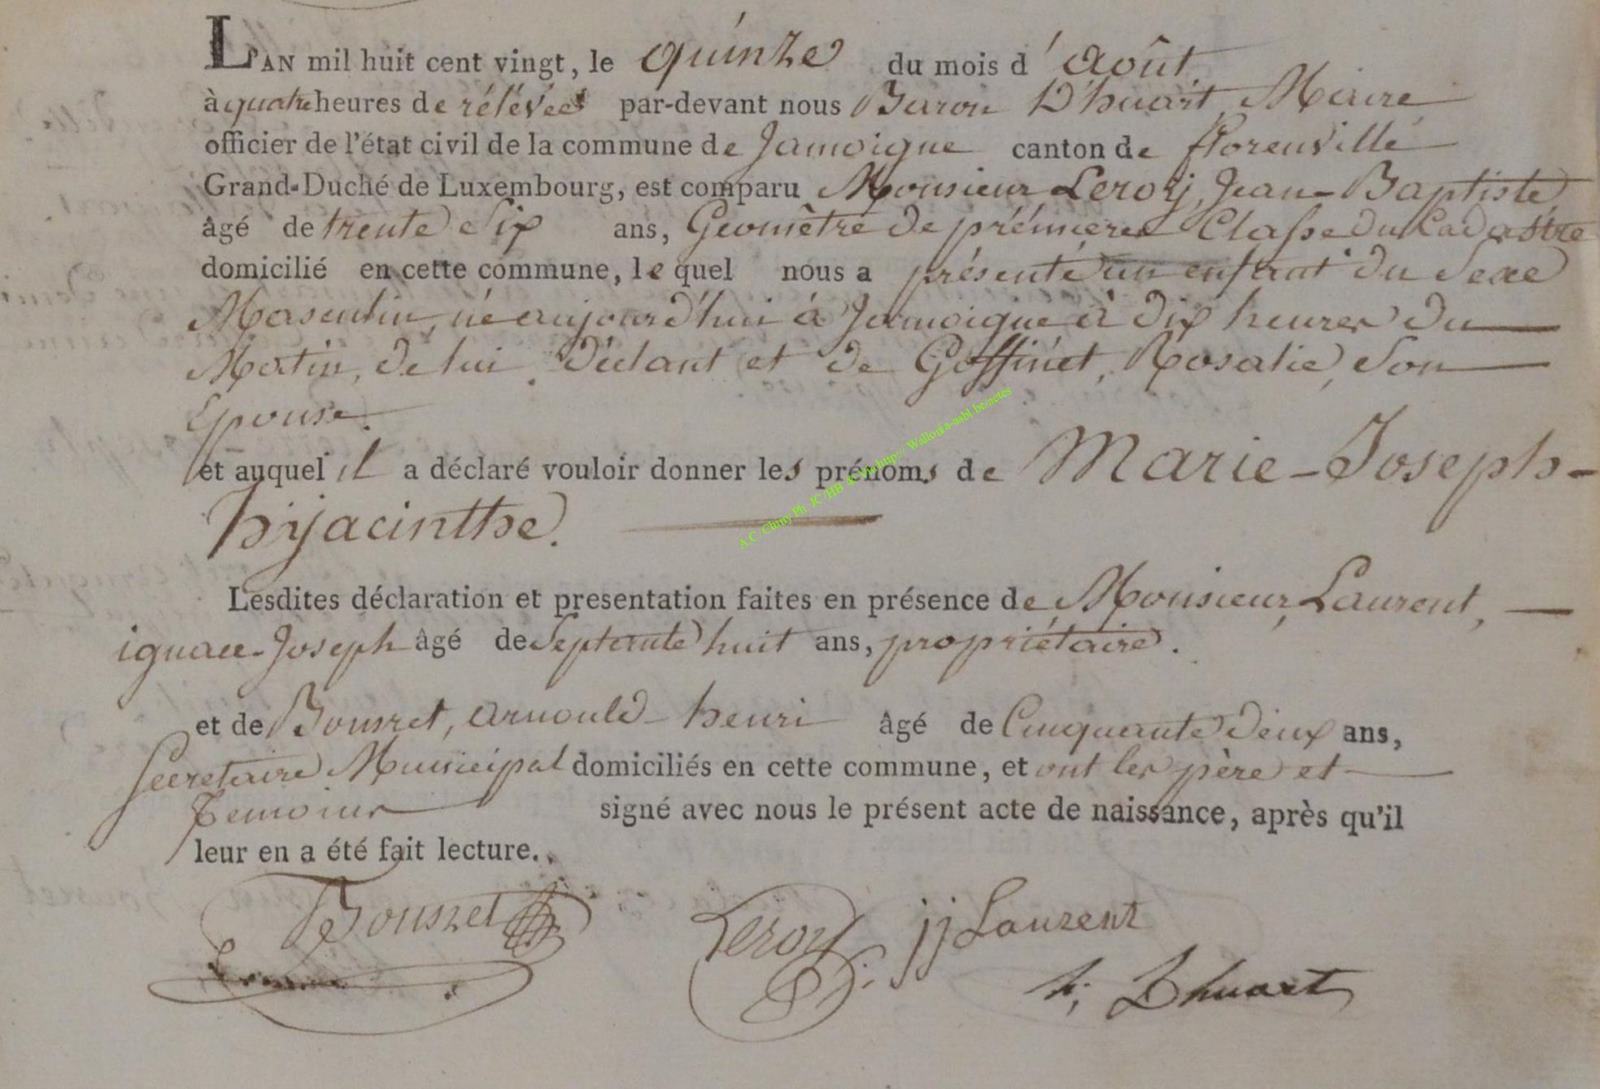 L'AN mil huit cent vingt, le quinze du mois d'Août
à quatre heures de rélévée par-devant nous Baron D'huart, Maire
officier de l'état civil de la commune de Jamoigne canton de florenville
Grand-Duché de Luxembourg, est comparu Monsieur Leroy, Jean-Baptiste
âgé de trente Six ans, Géomètre de prémiere Classe du Cadastre
domicilié en cette commune, lequel nous a présenté un enfant du Sexe
Masculin, né aujourd'hui à Jamoigne à dix heures du
Matin, de lui déclarant et de Goffinet, Rosalie, Son
Epouse.
et auquel il a déclaré vouloir donner les prénoms de Marie-Joseph-
hyacinthe.
A.C. Chiny Ph. JC/HB http://Wallonia-asbl.be/actes
Lesdites déclaration et presentation faites en présence de Monsieur, Laurent,
ignace-Joseph âgé de Septante huit ans, propriétaire.
et de Bousret, Arnould-henri âgé de Cinquante deux ans,
Secretaire Municipal domiciliés en cette commune, et ont les père et
Temoins signé avec nous le présent acte de naissance, après qu'il
leur en a été fait lecture.
Bousret Leroy jj Laurent
h; Dhuart